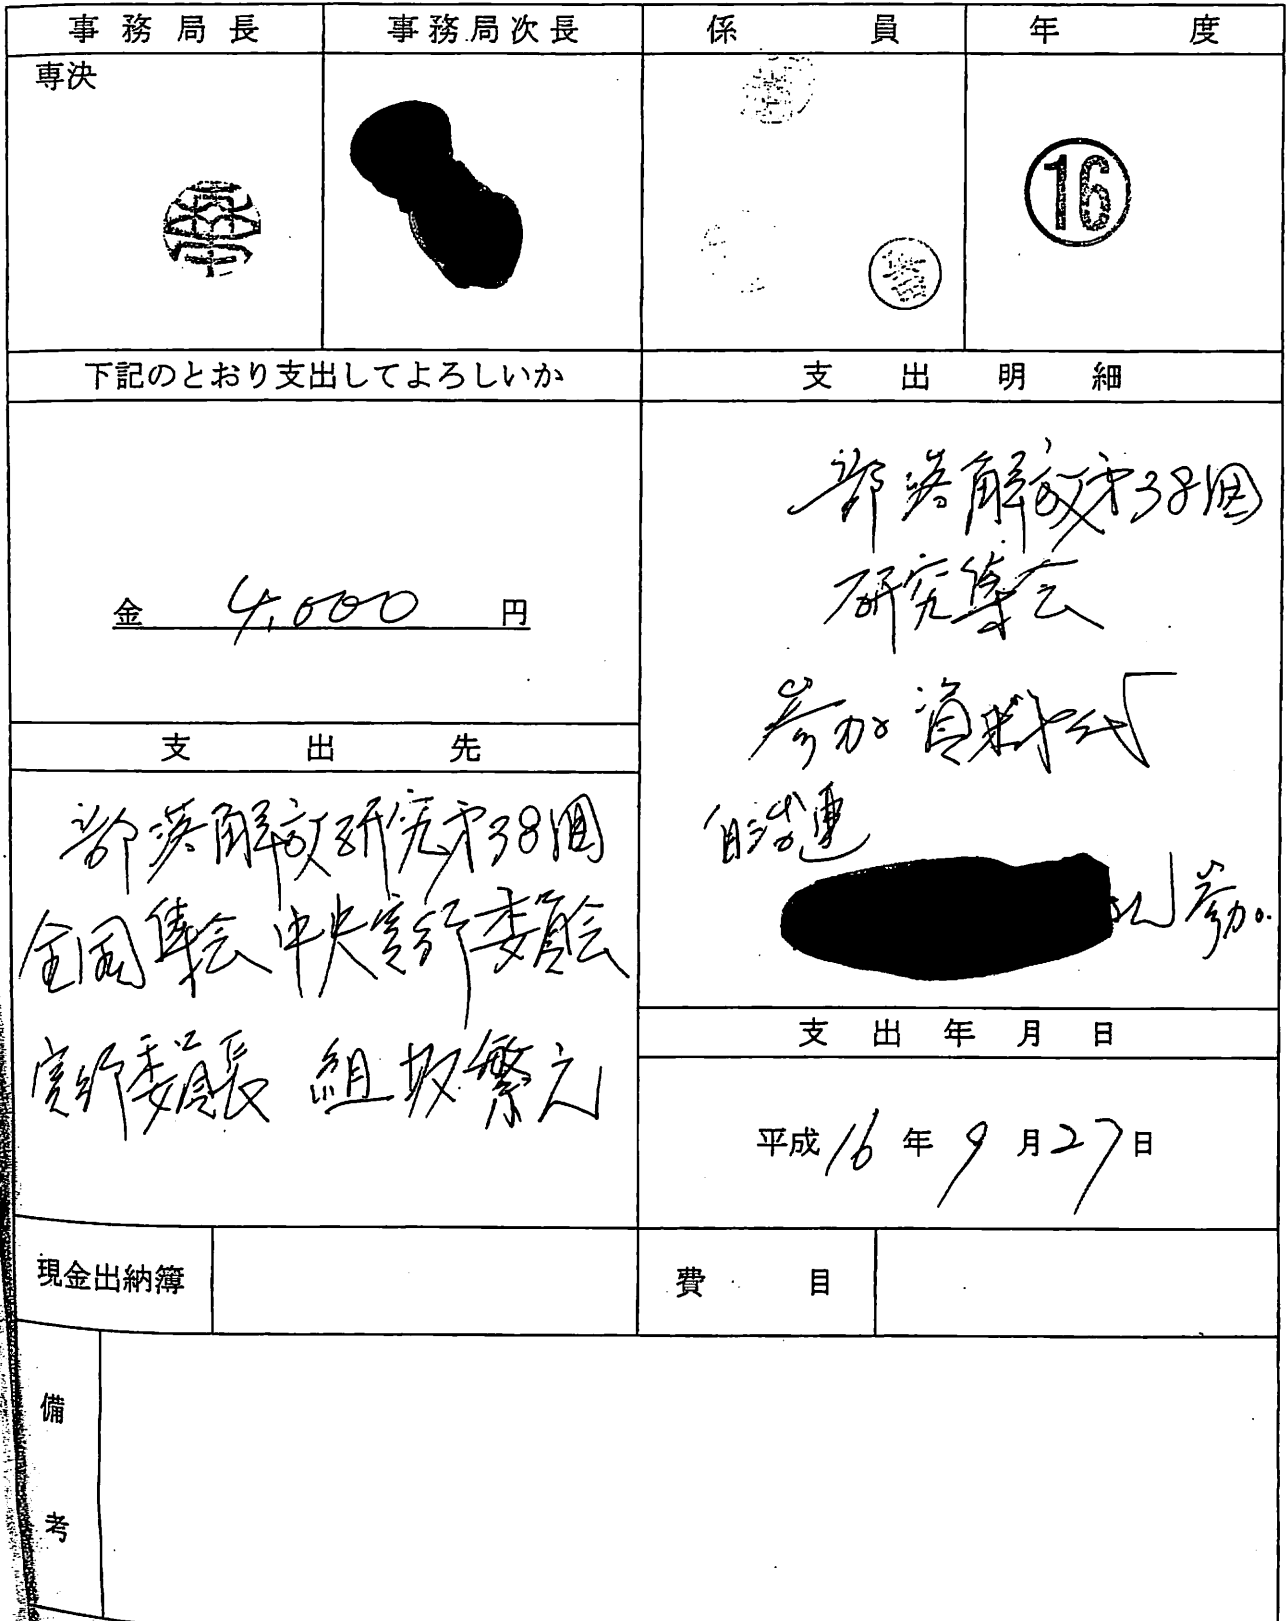 事務局長
事務局次長
係員
年度
専決
16
下記のとおり支出してよろしいか
金 4,000 円
支出先
部落解放研究第38回
全国集会中央実行委員会
実行委員長 組坂繁之
支出明細
部落解放第38回
研究集会
参加資料代
自治連
参加
支出年月日
平成16年9月27日
現金出納簿
費目
備考